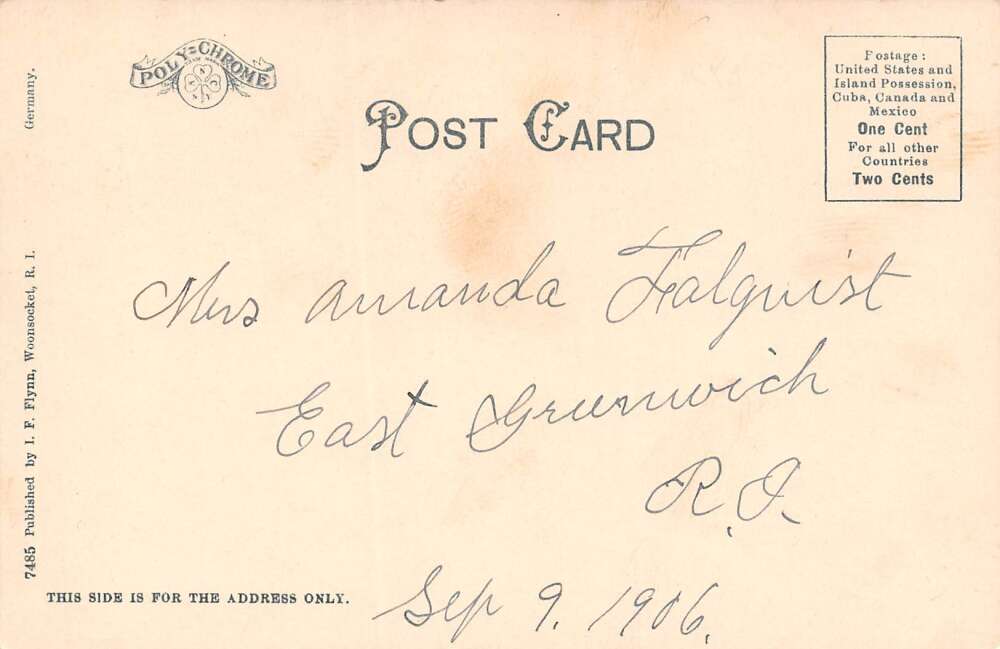 POLY=CHROME
POST CARD
Postage:
United States and
Island Possession,
Cuba, Canada and
Mexico
One Cent
For all other
Countries
Two Cents
Mrs Amanda Falquist
East Greenwich
R. I.
Sep 9. 1906.
THIS SIDE IS FOR THE ADDRESS ONLY.
7485 Published by I. F. Flynn, Woonsocket, R. I.
Germany.